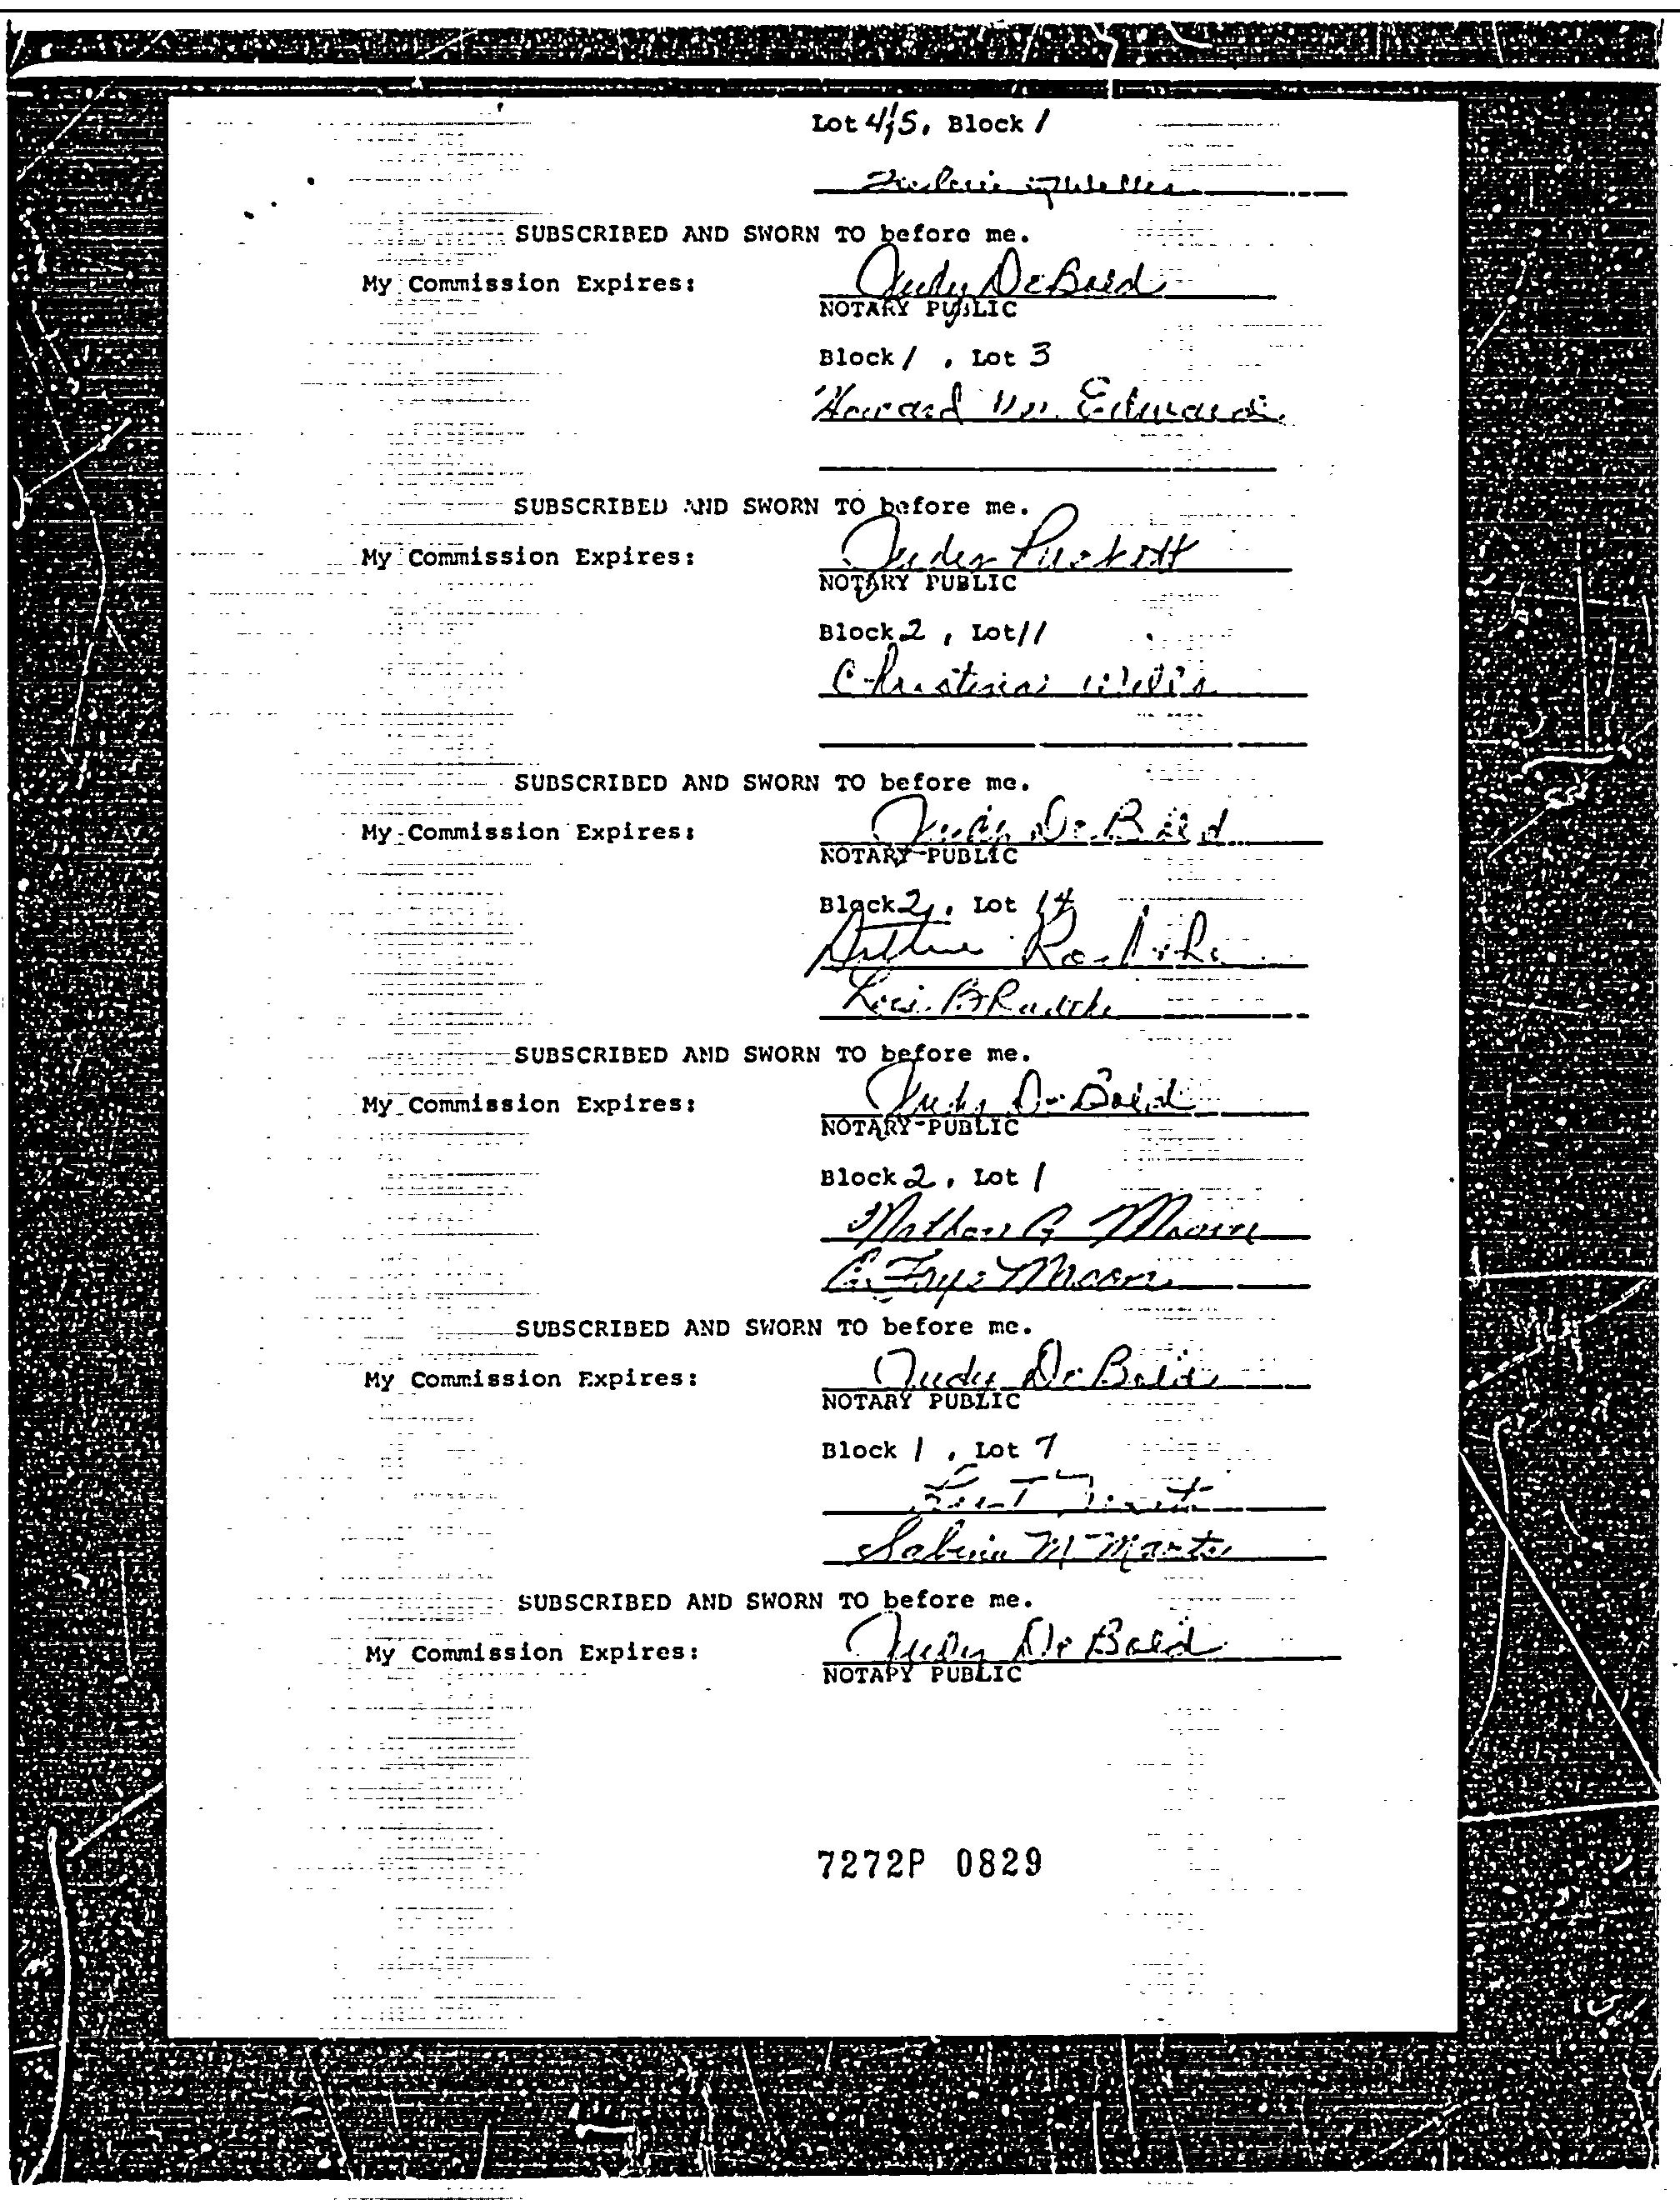 Lot 4,5, Block 1
SUBSCRIBED AND SWORN TO before me.
My Commission Expires:
Judy DeBord
NOTARY PUBLIC
Block 1, Lot 3
Howard Wm. Edwards
SUBSCRIBED AND SWORN TO before me.
My Commission Expires:
Puckett
NOTARY PUBLIC
Block 2, Lot 11
Christina Wells
SUBSCRIBED AND SWORN TO before me.
My Commission Expires:
Judy DeBord
NOTARY PUBLIC
Block 2, Lot 14
Lois B Radtke
SUBSCRIBED AND SWORN TO before me.
My Commission Expires:
Judy DeBord
NOTARY PUBLIC
Block 2, Lot 1
E. Faye
SUBSCRIBED AND SWORN TO before me.
My Commission Expires:
Judy DeBord
NOTARY PUBLIC
Block 1, Lot 7
Sabina M
SUBSCRIBED AND SWORN TO before me.
My Commission Expires:
Judy DeBord
NOTARY PUBLIC
7272P 0829